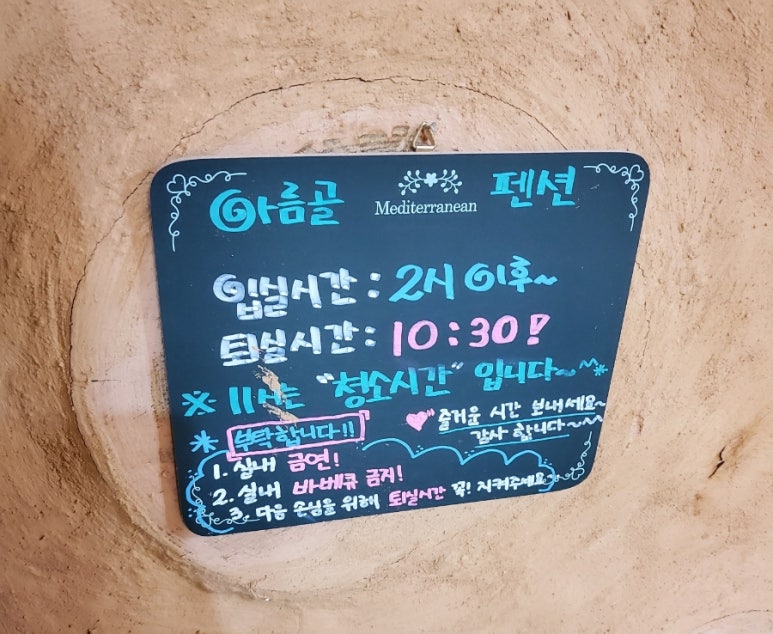 아름골 Mediterranean 펜션
입실시간 : 2시 이후~
퇴실시간 : 10:30!
※ 11시는 "청소시간" 입니다~^^*
* 부탁합니다!!
♥ 즐거운 시간 보내세요~
감사 합니다~^^
1. 실내 금연!
2. 실내 바베큐 금지!
3. 다음 손님을 위해 퇴실시간 꼭! 지켜주세요